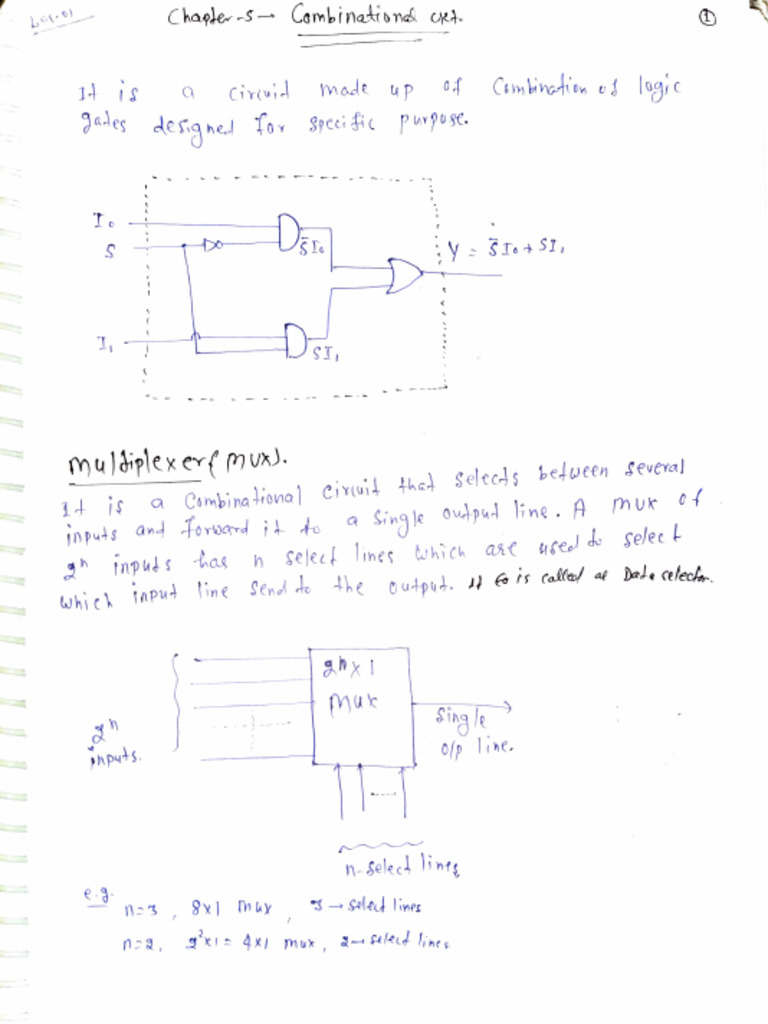 Chapter-5→ Combinational CKt.
1
It is a circuit made up of Combination of logic
gates designed for specific purpose.
I₀
S
S̄I₀
Y = S̄I₀ + SI₁
I₁
SI₁
Multiplexer (MUX).
It is a Combinational circuit that selects between several
inputs and forward it to a single output line. A mux of
2ⁿ inputs has n select lines which are used to select
which input line send to the output. It is called as Data selector.
2ⁿ×1
mux
single
o/p line.
2ⁿ
inputs.
n-select lines
e.g.
n=3, 8×1 mux, 3→select lines
n=2, 2²×1 = 4×1 mux, 2→select lines